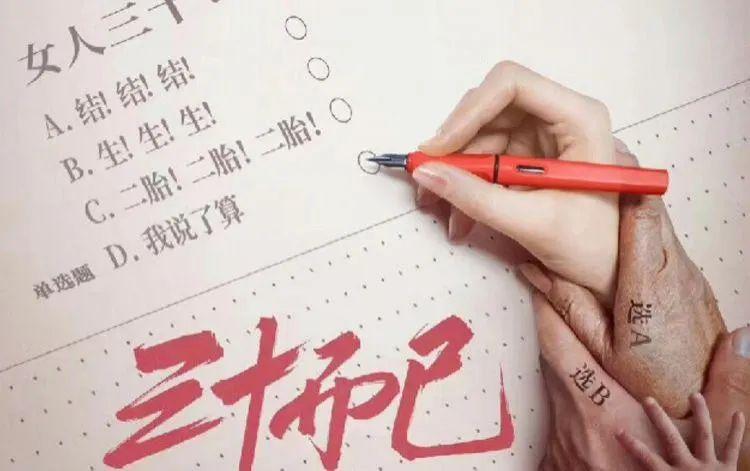 女人三十
A. 结! 结! 结!
B. 生! 生! 生!
C. 二胎! 二胎! 二胎!
单选题 D. 我说了算
三十而已
选A
选B